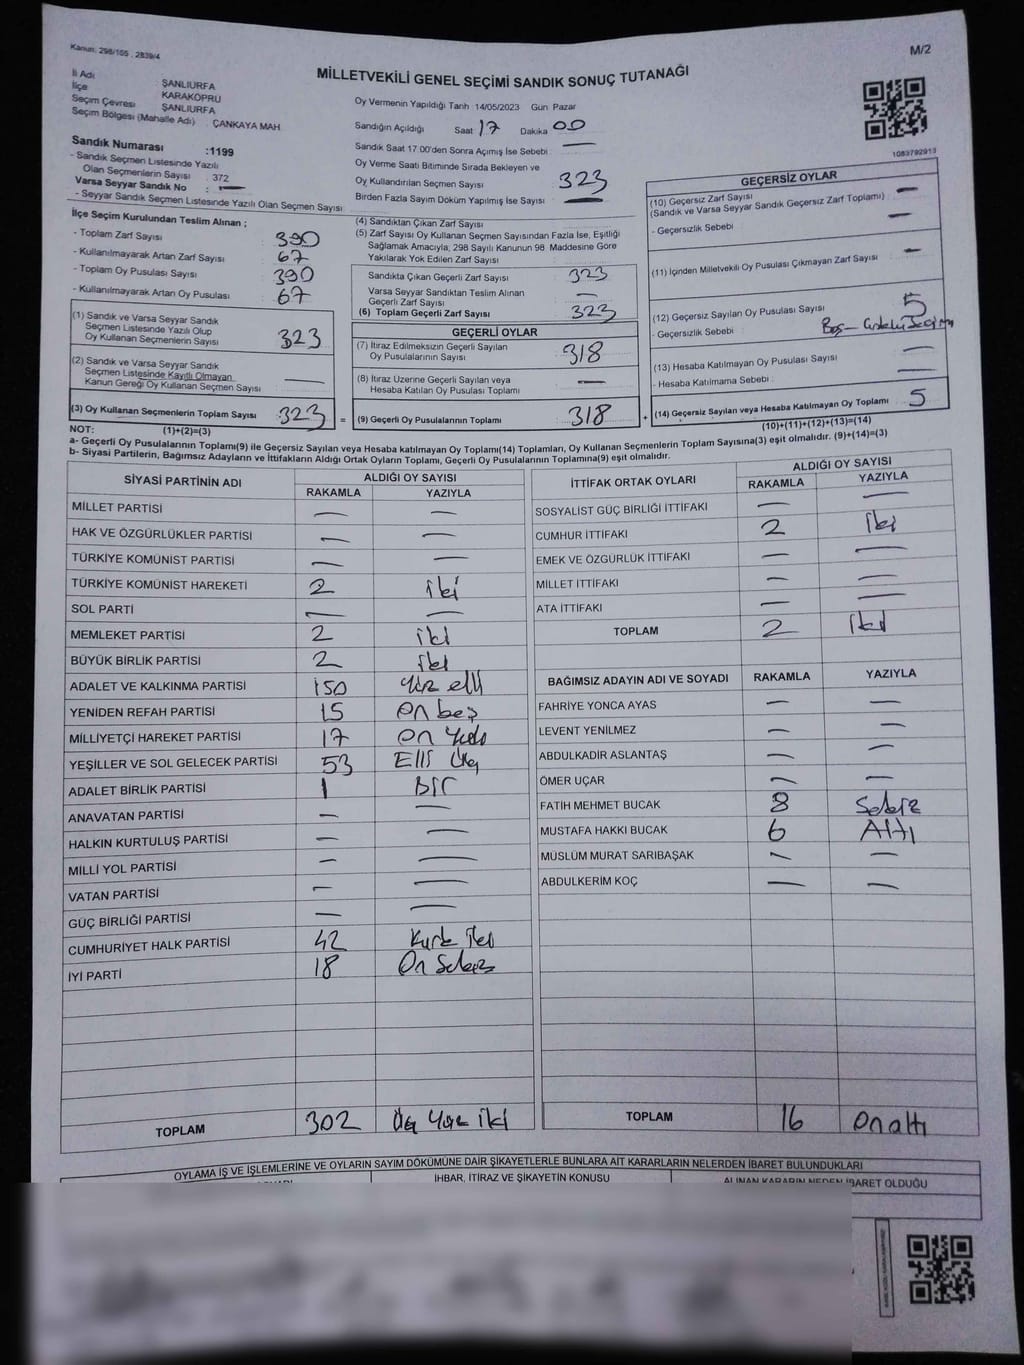 Kanun: 298/105 , 2839/4
M/2
MİLLETVEKİLİ GENEL SEÇİMİ SANDIK SONUÇ TUTANAĞI
İl Adı ŞANLIURFA
İlçe KARAKÖPRÜ
Seçim Çevresi ŞANLIURFA
Seçim Bölgesi (Mahalle Adı) : ÇANKAYA MAH
Sandık Numarası :1199
- Sandık Seçmen Listesinde Yazılı
Olan Seçmenlerin Sayısı : 372
Varsa Seyyar Sandık No : —
- Seyyar Sandık Seçmen Listesinde Yazılı Olan Seçmen Sayısı :
İlçe Seçim Kurulundan Teslim Alınan ;
- Toplam Zarf Sayısı : 390
- Kullanılmayarak Artan Zarf Sayısı : 67
- Toplam Oy Pusulası Sayısı : 390
- Kullanılmayarak Artan Oy Pusulası : 67
(1) Sandık ve Varsa Seyyar Sandık
Seçmen Listesinde Yazılı Olup
Oy Kullanan Seçmenlerin Sayısı : 323
(2) Sandık ve Varsa Seyyar Sandık
Seçmen Listesinde Kayıtlı Olmayan
Kanun Gereği Oy Kullanan Seçmen Sayısı : —
(3) Oy Kullanan Seçmenlerin Toplam Sayısı : 323 =
(1)+(2)=(3)
Oy Vermenin Yapıldığı Tarih :14/05/2023 Gün Pazar
Sandığın Açıldığı Saat 17 Dakika 00
Sandık Saat 17:00'den Sonra Açımış İse Sebebi : —
Oy Verme Saati Bitiminde Sırada Bekleyen ve
Oy Kullandırılan Seçmen Sayısı : 323
Birden Fazla Sayım Döküm Yapılmış İse Sayısı : —
(4) Sandıktan Çıkan Zarf Sayısı :
(5) Zarf Sayısı Oy Kullanan Seçmen Sayısından Fazla İse, Eşitliği
Sağlamak Amacıyla, 298 Sayılı Kanunun 98. Maddesine Göre
Yakılarak Yok Edilen Zarf Sayısı :
Sandıkta Çıkan Geçerli Zarf Sayısı : 323
Varsa Seyyar Sandıktan Teslim Alınan
Geçerli Zarf Sayısı : —
(6) Toplam Geçerli Zarf Sayısı : 323
GEÇERLİ OYLAR
(7) İtiraz Edilmeksizin Geçerli Sayılan
Oy Pusulalarının Sayısı : 318
(8) İtiraz Üzerine Geçerli Sayılan veya
Hesaba Katılan Oy Pusulası Toplamı : —
(9) Geçerli Oy Pusulalarının Toplamı : 318 +
1083792913
GEÇERSİZ OYLAR
(10) Geçersiz Zarf Sayısı : —
(Sandık ve Varsa Seyyar Sandık Geçersiz Zarf Toplamı)
- Geçersizlik Sebebi : —
(11) İçinden Milletvekili Oy Pusulası Çıkmayan Zarf Sayısı : —
(12) Geçersiz Sayılan Oy Pusulası Sayısı : 5
- Geçersizlik Sebebi : Boş —
(13) Hesaba Katılmayan Oy Pusulası Sayısı : —
- Hesaba Katılmama Sebebi : —
(14) Geçersiz Sayılan veya Hesaba Katılmayan Oy Toplamı : 5
(10)+(11)+(12)+(13)=(14)
NOT:
a- Geçerli Oy Pusulalarının Toplamı(9) ile Geçersiz Sayılan veya Hesaba katılmayan Oy Toplamı(14) Toplamları, Oy Kullanan Seçmenlerin Toplam Sayısına(3) eşit olmalıdır. (9)+(14)=(3)
b- Siyasi Partilerin, Bağımsız Adayların ve İttifakların Aldığı Ortak Oyların Toplamı, Geçerli Oy Pusulalarının Toplamına(9) eşit olmalıdır.
SİYASİ PARTİNİN ADI ALDIĞI OY SAYISI
RAKAMLA YAZIYLA
MİLLET PARTİSİ — —
HAK VE ÖZGÜRLÜKLER PARTİSİ — —
TÜRKİYE KOMÜNİST PARTİSİ — —
TÜRKİYE KOMÜNİST HAREKETİ 2 iki
SOL PARTİ — —
MEMLEKET PARTİSİ 2 iki
BÜYÜK BİRLİK PARTİSİ 2 iki
ADALET VE KALKINMA PARTİSİ 150 Yüz elli
YENİDEN REFAH PARTİSİ 15 on beş
MİLLİYETÇİ HAREKET PARTİSİ 17 on Yedi
YEŞİLLER VE SOL GELECEK PARTİSİ 53 Elli üç
ADALET BİRLİK PARTİSİ 1 Bir
ANAVATAN PARTİSİ — —
HALKIN KURTULUŞ PARTİSİ — —
MİLLİ YOL PARTİSİ — —
VATAN PARTİSİ — —
GÜÇ BİRLİĞİ PARTİSİ — —
CUMHURİYET HALK PARTİSİ 42 Kırk iki
İYİ PARTİ 18 On Sekiz
TOPLAM 302 Üç Yüz iki
İTTİFAK ORTAK OYLARI ALDIĞI OY SAYISI
RAKAMLA YAZIYLA
SOSYALİST GÜÇ BİRLİĞİ İTTİFAKI — —
CUMHUR İTTİFAKI 2 iki
EMEK VE ÖZGÜRLÜK İTTİFAKI — —
MİLLET İTTİFAKI — —
ATA İTTİFAKI — —
TOPLAM 2 iki
BAĞIMSIZ ADAYIN ADI VE SOYADI RAKAMLA YAZIYLA
FAHRİYE YONCA AYAS — —
LEVENT YENİLMEZ — —
ABDULKADİR ASLANTAŞ — —
ÖMER UÇAR — —
FATİH MEHMET BUCAK 8 Sekiz
MUSTAFA HAKKI BUCAK 6 Altı
MÜSLÜM MURAT SARIBAŞAK — —
ABDULKERİM KOÇ — —
TOPLAM 16 onaltı
OYLAMA İŞ VE İŞLEMLERİNE VE OYLARIN SAYIM DÖKÜMÜNE DAİR ŞİKAYETLERLE BUNLARA AİT KARARLARIN NELERDEN İBARET BULUNDUKLARI
İHBAR, İTİRAZ VE ŞİKAYETİN KONUSU
ALINAN KARARIN NEDEN İBARET OLDUĞU